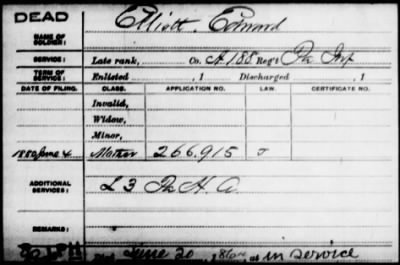 DEAD
NAME OF SOLDIER: Elliott, Edward
SERVICE: Late rank, Co. A, 188 Reg't Pa Inf
TERM OF SERVICE: Enlisted , 1 Discharged , 1
DATE OF FILING. CLASS. APPLICATION NO. LAW. CERTIFICATE NO.
Invalid,
Widow,
Minor,
1880 June 4 Mother 266.915 J
ADDITIONAL SERVICES: L 3 Pa H. A.
REMARKS:
Died June 20, 186 , at in service